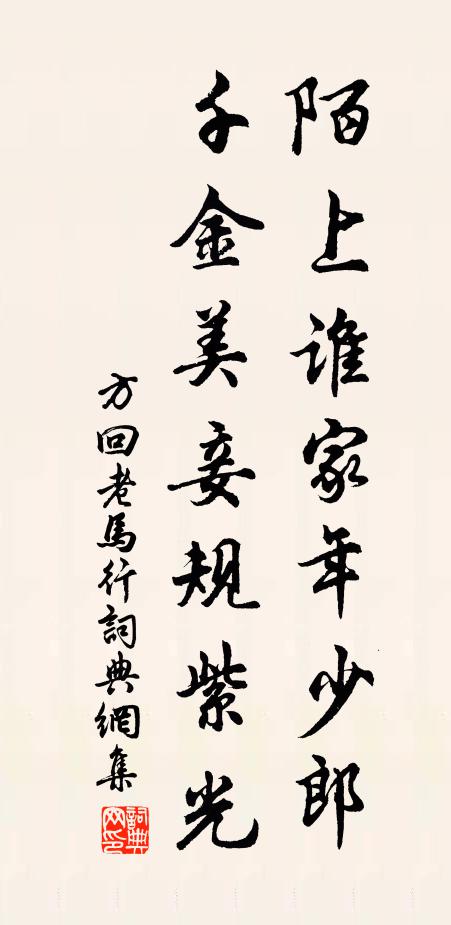 陌上谁家年少郎
千金美妾规紫光
方回老馬行詞典網集
詞典网印